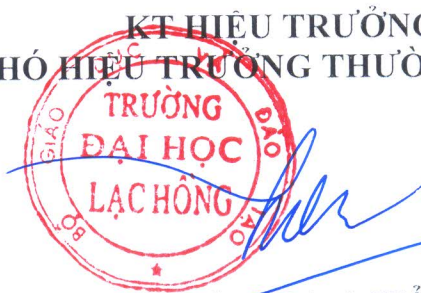 KT HIỆU TRƯỞNG
HÓ HIỆU TRƯỞNG THƯỜ
BỘ GIÁO DỤC VÀ ĐÀO TẠO
TRƯỜNG
ĐẠI HỌC
LẠC HỒNG